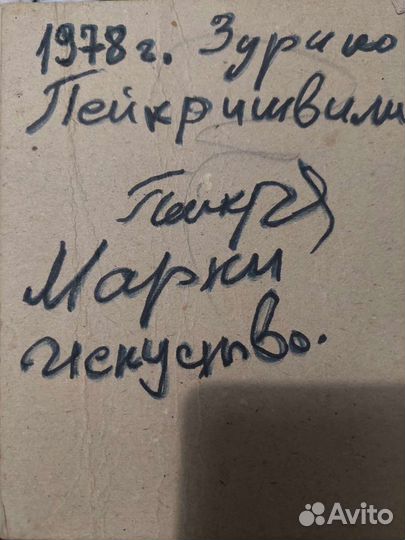 1978 г. Зурико
Пейкришвили
Марки
искуство.
Avito